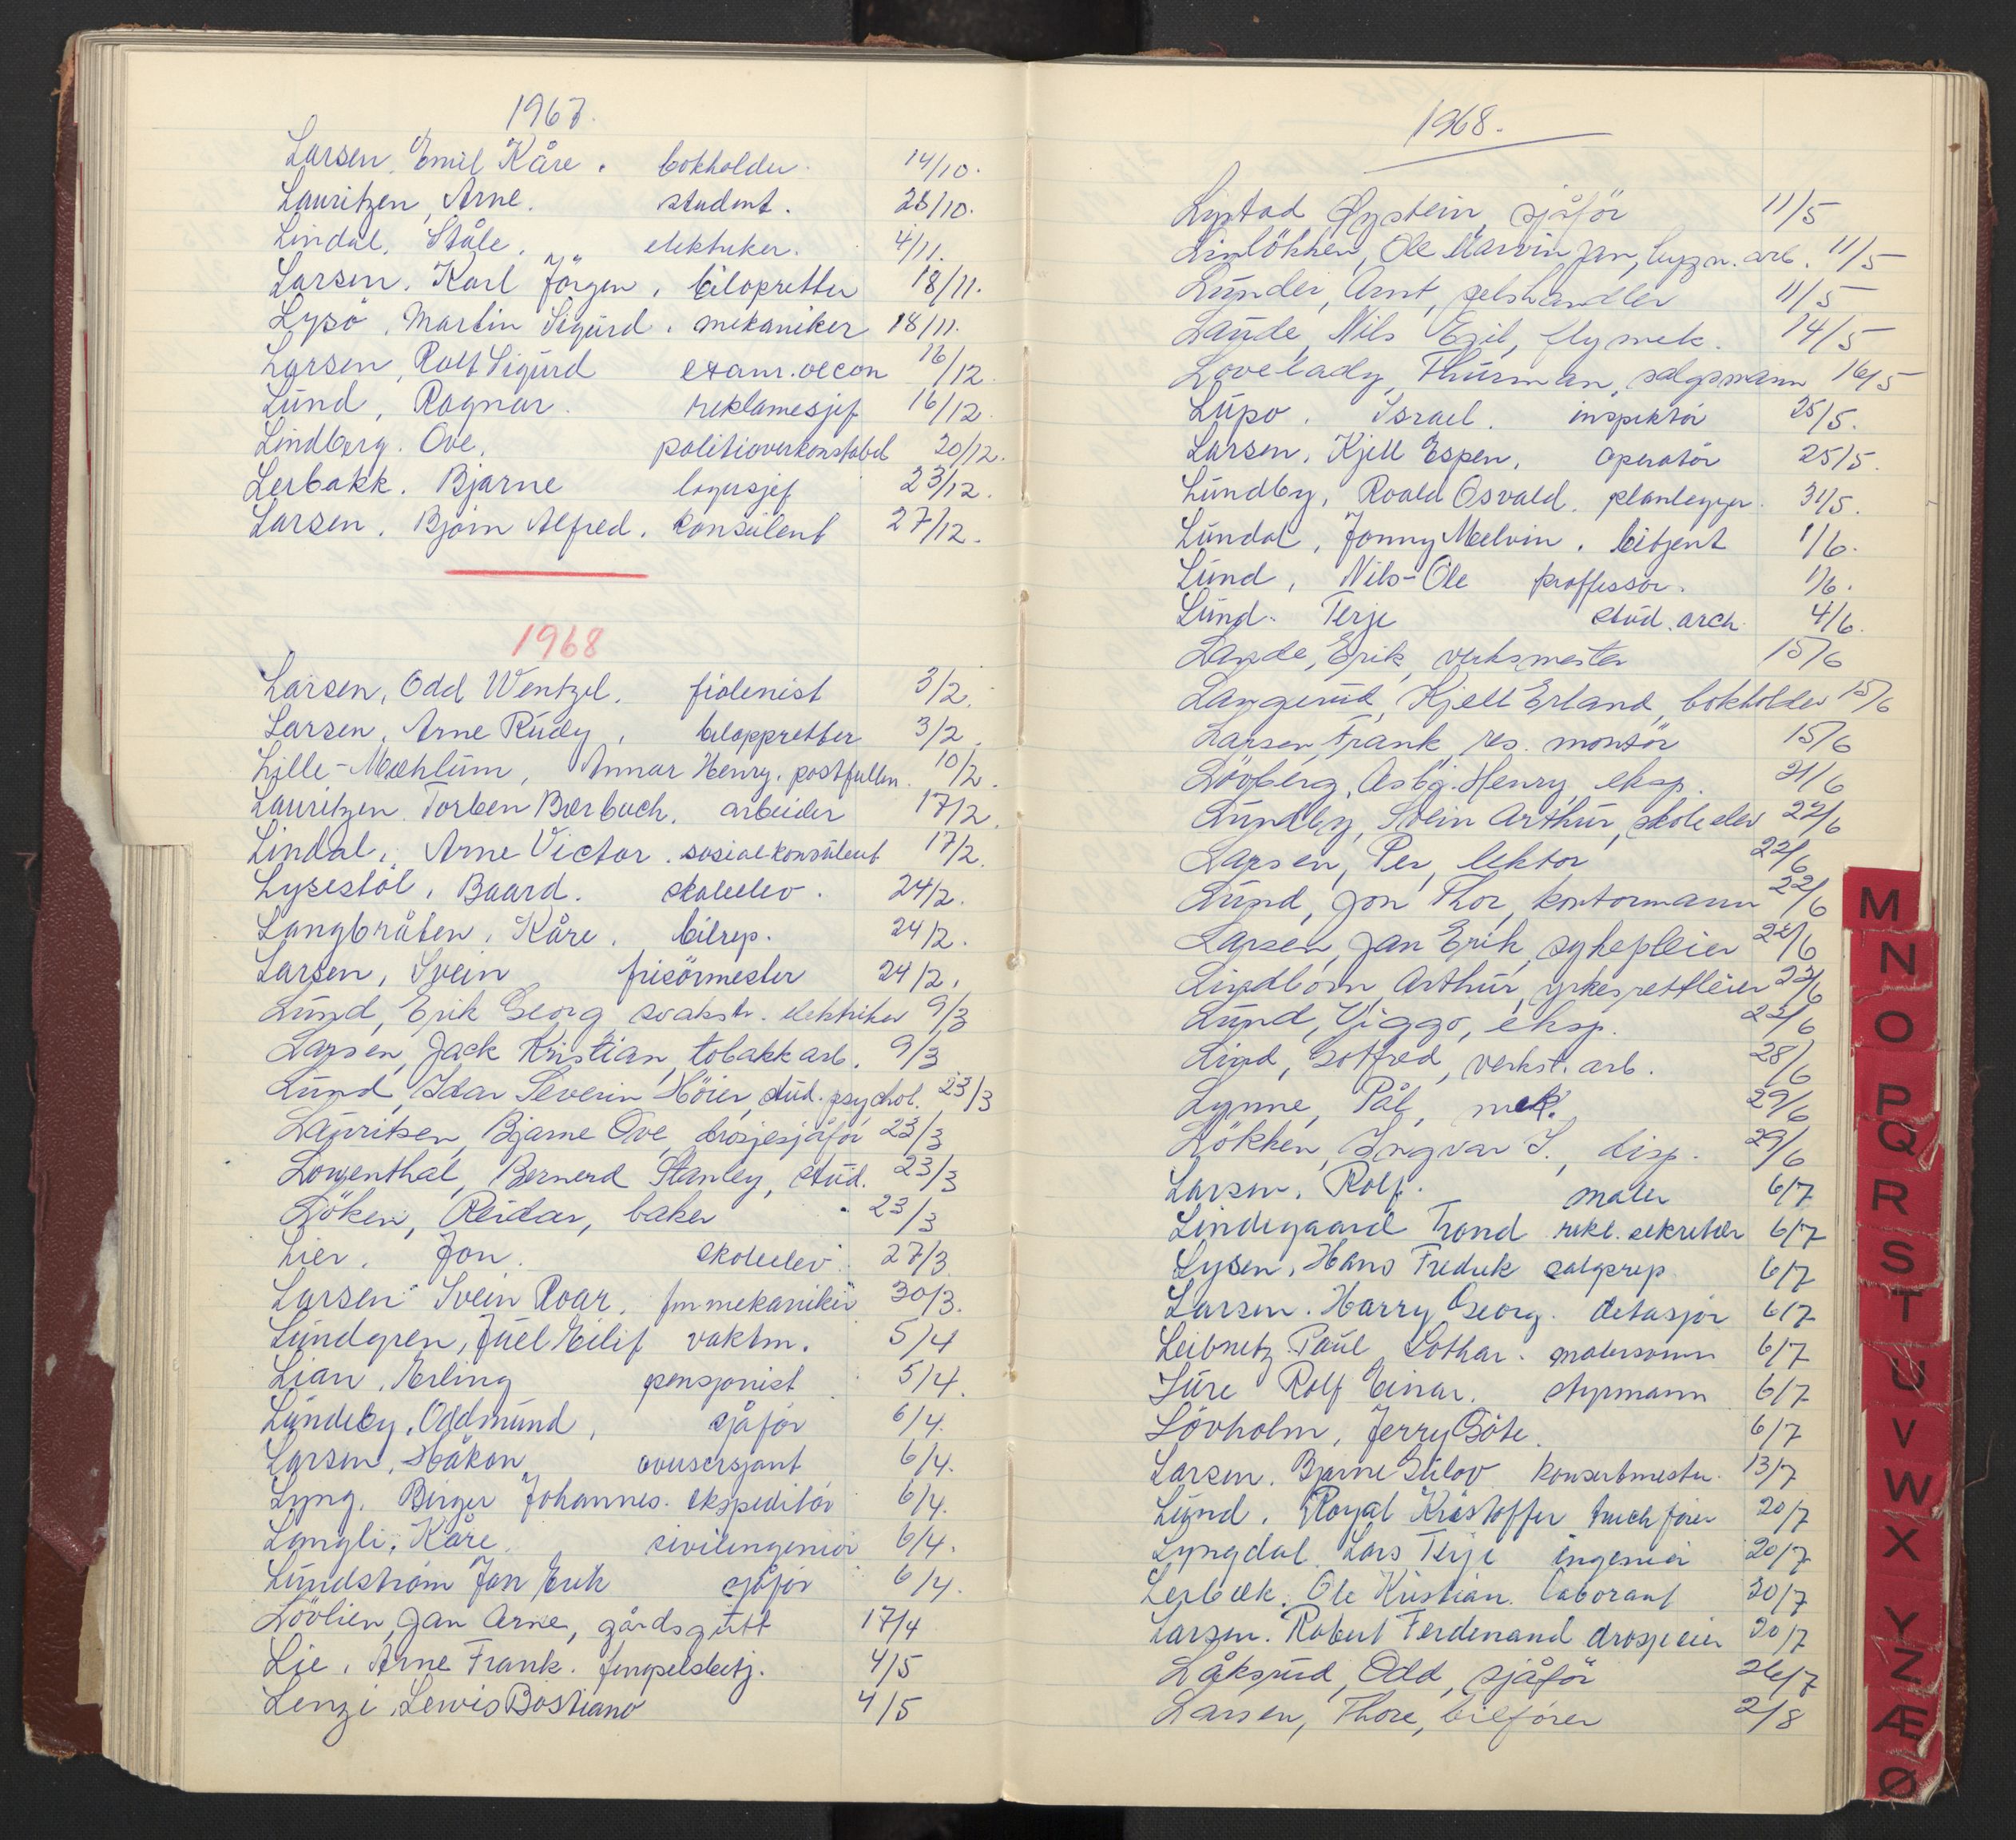 1967.
Larsen, Emil Kåre. bokholder. 14/10.
Lauritzen, Arne. student. 28/10.
Lindal, Ståle. elektriker. 4/11.
Larsen, Karl Jörgen. biloppretter 18/11.
Lysö, Martin Sigurd. mekaniker 18/11.
Larsen, Rolf Sigurd exam. oecon 16/12.
Lund, Ragnar. reklamesjef 16/12.
Lindberg. Ove. politioverkonstabel 20/12.
Lerbakk. Bjarne lagersjef 23/12.
Larsen. Björn Alfred. konsulent 27/12.
1968
Larsen, Odd Wentzel. fiolinist 3/2.
Larsen, Arne Rudy, biloppretter 3/2.
Lille-Mæhlum, Annar Henry. postfullm. 10/2.
Lauritzen. Torben Bærbach. arbeider 17/2.
Lindal, Arne Victor. sosialkonsulent 17/2.
Lysestöl, Baard. skoleelev. 24/2.
Langbråten, Kåre. bilrep. 24/2.
Larsen, Svein frisörmester 24/2.
Lund, Erik Georg svakstr. elektriker 9/3
Larsen, Jack Kristian, tobakkarb. 9/3
Lund, Idar Severin Höier, stud. psychol. 23/3
Lauritsen, Bjarne Ove, drosjesjåför 23/3
Lowenthal, Bernerd Stanley, stud. 23/3
Löken, Reidar, baker 23/3
Lier, Jon. skoleelev. 27/3
Larsen Svein Roar. finmekaniker 30/3.
Lundgren, Juel Eilif vaktm. 5/4
Lian, Erling pensjonist 5/4.
Lundeby, Oddmund, sjåför 6/4.
Larsen, Håkon oversersjant 6/4.
Lyng. Birger Johannes. ekspeditör 6/4.
Langli, Kåre. sivilingeniör 6/4.
Lundström Jan Erik sjåför 6/4.
Lövlien, Jan Arne, gårdsgutt 17/4
Lie, Arne Frank. fengselsbetj. 4/5
Lenzi, Lewis Bastiano 4/5
1968.
Lystad Øystein, sjåför 11/5
Linlökken, Ole Marvin Jan, bygn. arb. 11/5
Lunder, Arnt, pelshandler 11/5
Lande, Nils Egil, flymek. 14/5
Lovelady, Thurman, salgsmann 16/5
Lupo. Israel. inspektör 25/5.
Larsen, Kjell Espen. operatör 25/5.
Lundby, Roald Osvald. planlegger. 31/5.
Lundal, Jonny Melvin. betjent 1/6.
Lund, Nils-Ole proffessor. 1/6.
Lund. Terje stud. arch. 4/6.
Lande, Erik, verksmester 15/6
Langerud, Kjell Erland, bokholder 15/6
Larsen, Frank, res. montör 15/6
Lövberg, Asbj. Henry, eksp. 21/6
Lundby, Svein Arthur, skoleelev 22/6
Larsen, Per, lektor 22/6
Lund, Jon Thor, kontormann 22/6
Larsen, Jan Erik, sykepleier 22/6
Lindbom, Arthur, yrkesrettleier 22/6
Lund, Viggo, eksp. 22/6
Lind, Gotfred, verkst. arb. 28/6
Lynne, Pål, mek. 29/6
Lökken, Ingvar I., disp. 29/6
Larsen, Rolf. maler 6/7
Lindegaard Trond rekl. sekretær 6/7
Lysen, Hans Fredrik salgsrep. 6/7
Larsen. Harry Georg. detasjör 6/7
Leibnetz Paul Lothar. malersvenn 6/7
Lure Rolf Einar. styrmann 6/7
Lövholm, Jerry Göte. 6/7
Larsen. Bjarne Gulov konsertmester. 13/7
Lund. Royal Kristoffer truckförer 20/7
Lyngdal. Lars Terje ingeniör 20/7
Lerbæk. Ole Kristian. laborant 20/7
Larsen. Robert Ferdenand drosjeeier 20/7
Låksrud, Odd, sjåför 26/7
Larsen, Thore, bilförer 2/8
M
N
O
P
Q
R
S
T
U
V
W
X
Y
Z
Æ
Ø